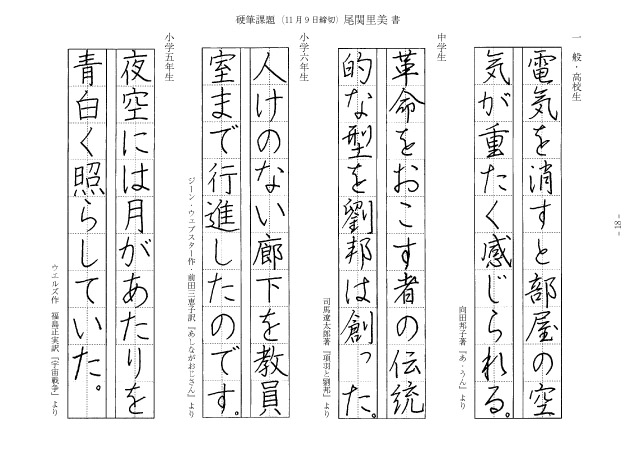 硬筆課題（11月9日締切）尾関里美 書
一般・高校生
電気を消すと部屋の空
気が重たく感じられる。
向田邦子著『あ・うん』より
中学生
革命をおこす者の伝統
的な型を劉邦は創った。
司馬遼太郎著『項羽と劉邦』より
小学六年生
人けのない廊下を教員
室まで行進したのです。
ジーン・ウェブスター作 前田三恵子訳『あしながおじさん』より
小学五年生
夜空には月があたりを
青白く照らしていた。
ウエルズ作 福島正実訳『宇宙戦争』より